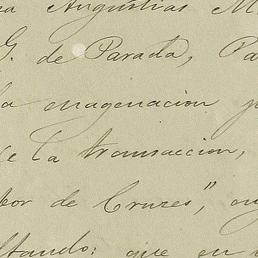 Augustias M
G. de Parada, Pa
la enagenacion p
de la transaccion,
bor de Cruzes",
ltando: que en